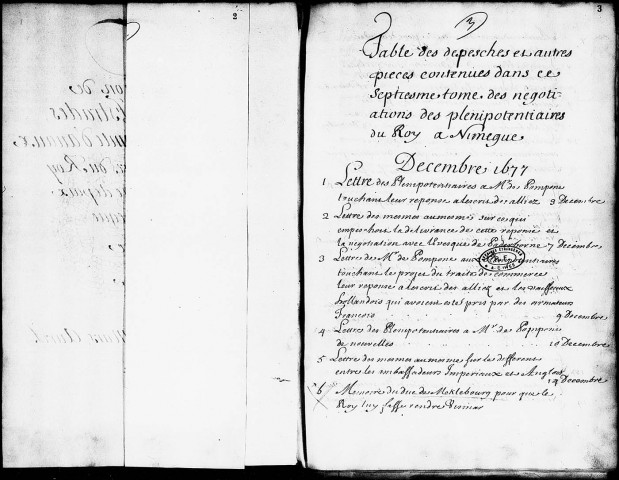 2
3
3
Table des depesches et autres
pieces contenues dans ce
septiesme tome des negoti-
ations des plenipotentiaires
du Roy a Nimegue
Decembre 1677
1 Lettre des Plenipotentiaires a Mr de Pompone
touchant leur reponse a lescrit des alliez 3 Decembre
2 Lettre des mesmes au mesme sur ce qui
empeschoit la delivrance de cette reponse et
la negotiation avec l'Evesque de 7 decembre
3 Lettre de Mr de Pompone aux Plenipotentiaires
touchant le projet du traité de commerce
leur reponse a lescrit des alliez et les vaisseaux
hollandois qui avoient esté pris par des armateurs
francois 9 Decembre
4 Lettre des Plenipotentiaires a Mr de Pompone
de nouvelles 10 Decembre
5 Lettre des mesmes au mesme sur le different
entre les ambassadeurs Imperiaux et Anglois
14 Decembre
6 Memoire du duc de Meklebourg pour que le
Roy luy fasse rendre Vismar